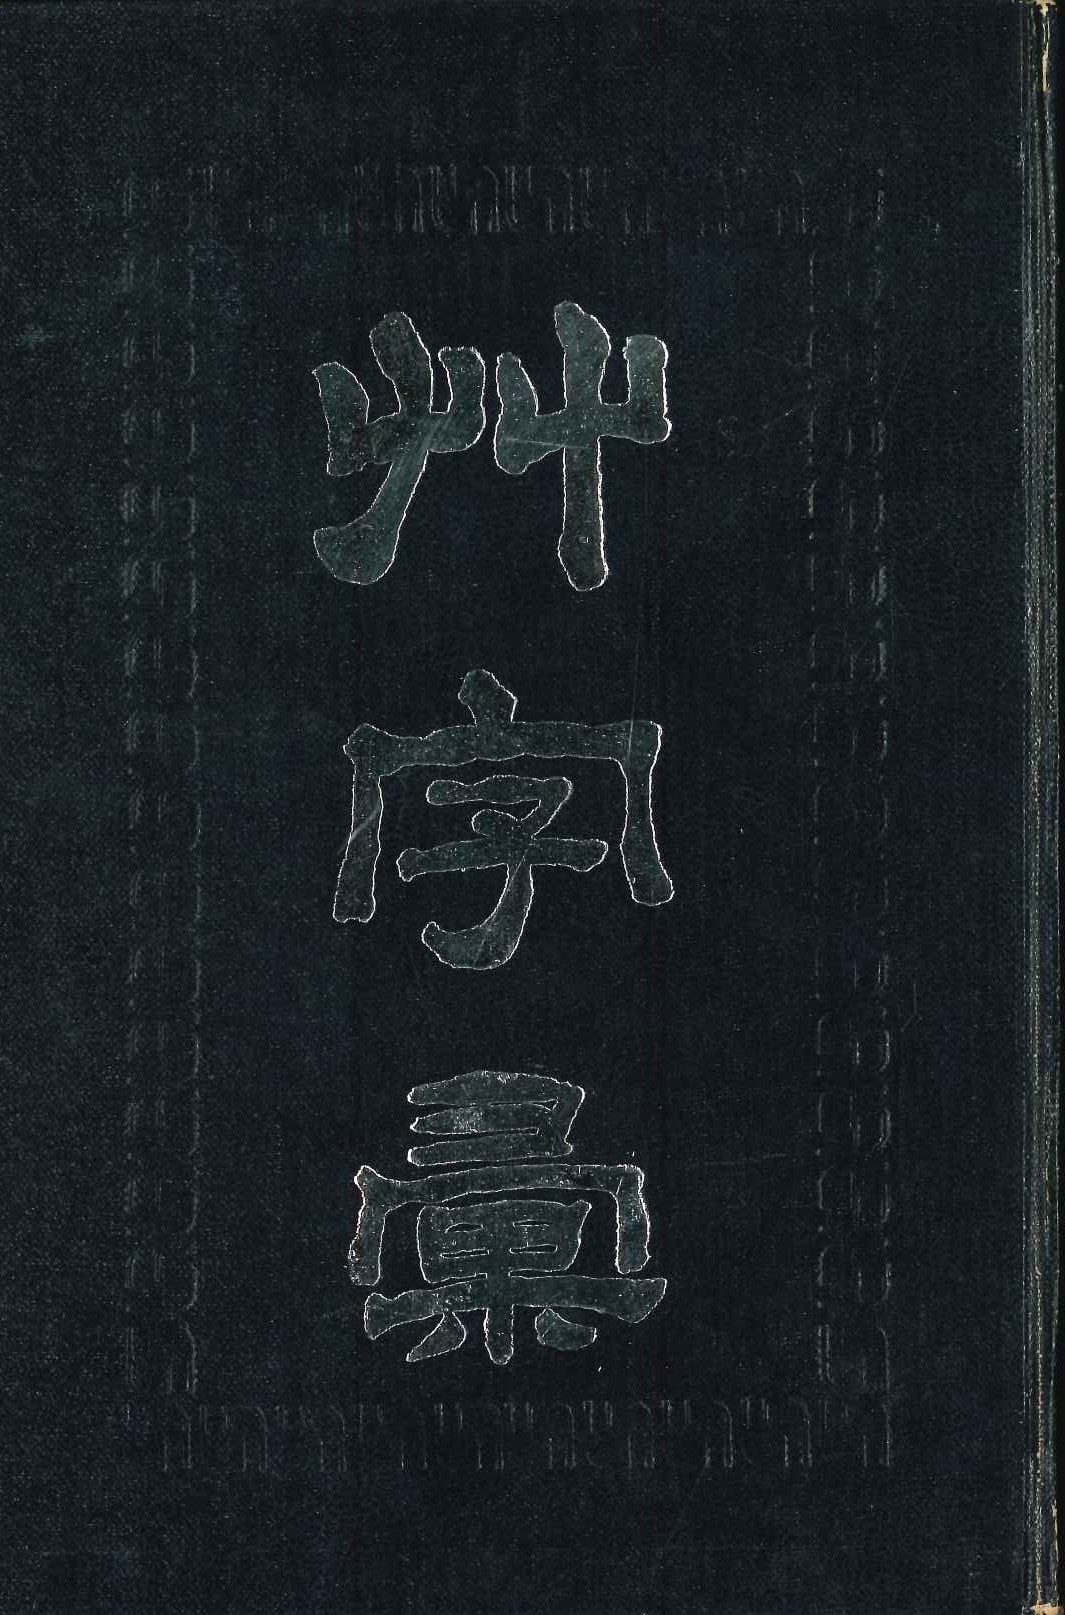 艸字彙